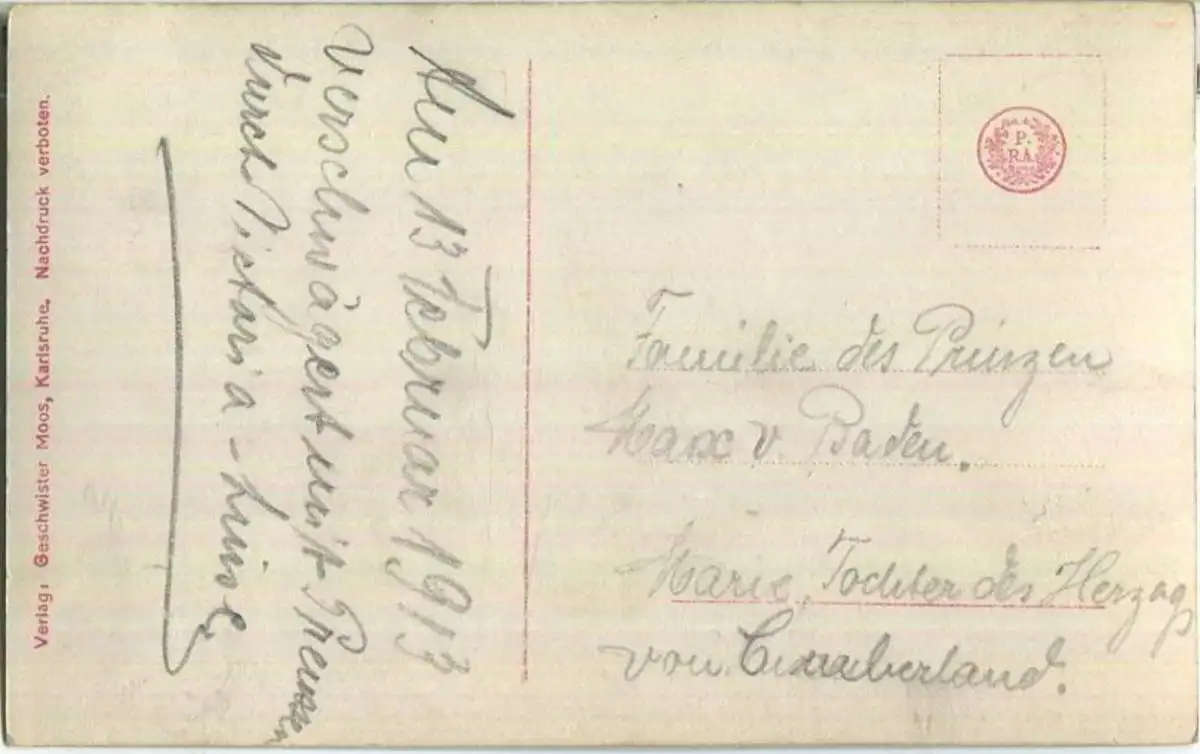 Am 13 Februar 1913
Verschwägert mit Preussen
durch Victoria-Luise
Familie des Prinzen
Max v. Baden.
Marie, Tochter des Herzogs
von Cumberland.
P.
RA.
Verlag: Geschwister Moos, Karlsruhe. Nachdruck verboten.